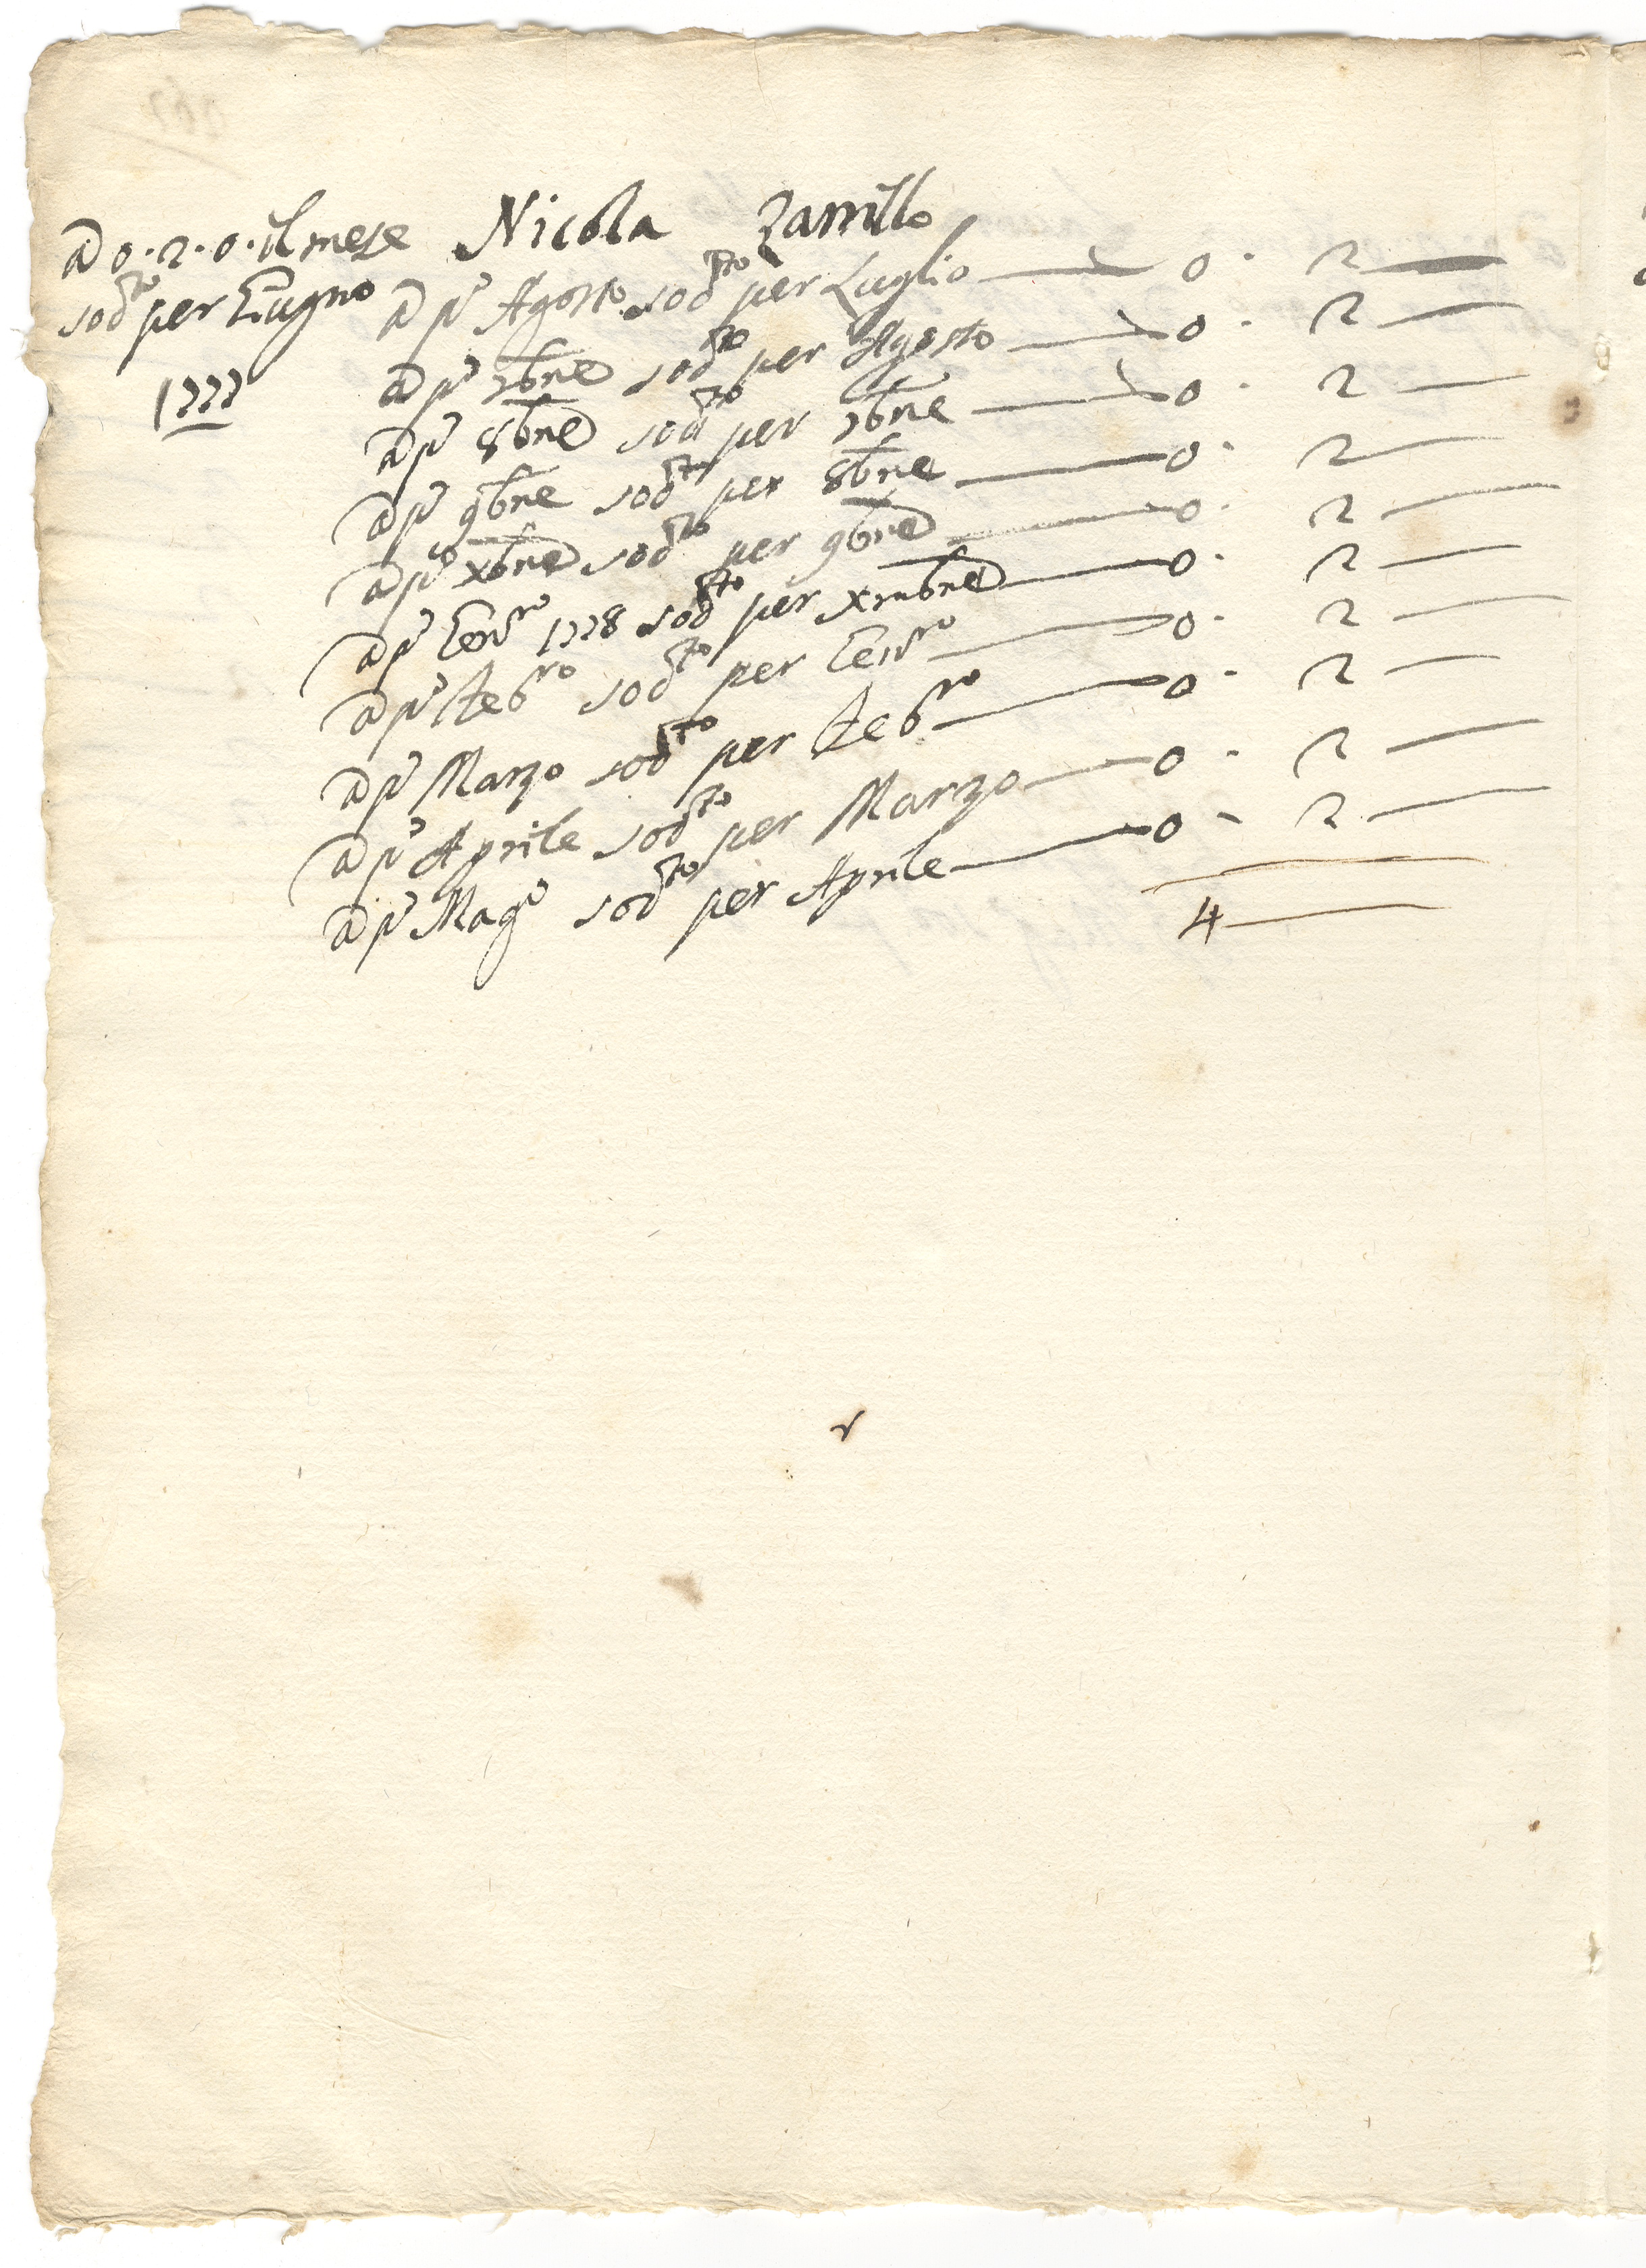 a 0.2.0. il mese Nicola Zarrillo
sod.to per Giugno
1777
a p.o Agosto sod.to per Luglio — 0 · 2 —
a p.o 7bre sod.to per Agosto — 0 · 2 —
a p.o 8bre sod.to per 7bre — 0 · 2 —
a p.o 9bre sod.to per 8bre — 0 · 2 —
a p.o Xbre sod.to per 9bre — 0 · 2 —
a p.o Gen.ro 1778 sod.to per Xmbre — 0 · 2 —
a p.o Feb.ro sod.to per Gen.ro — 0 · 2 —
a p.o Marzo sod.to per Feb.ro — 0 · 2 —
a p.o Aprile sod.to per Marzo — 0 · 2 —
a p.o Mag.o sod.to per Aprile — 0 - 2 —
4 —